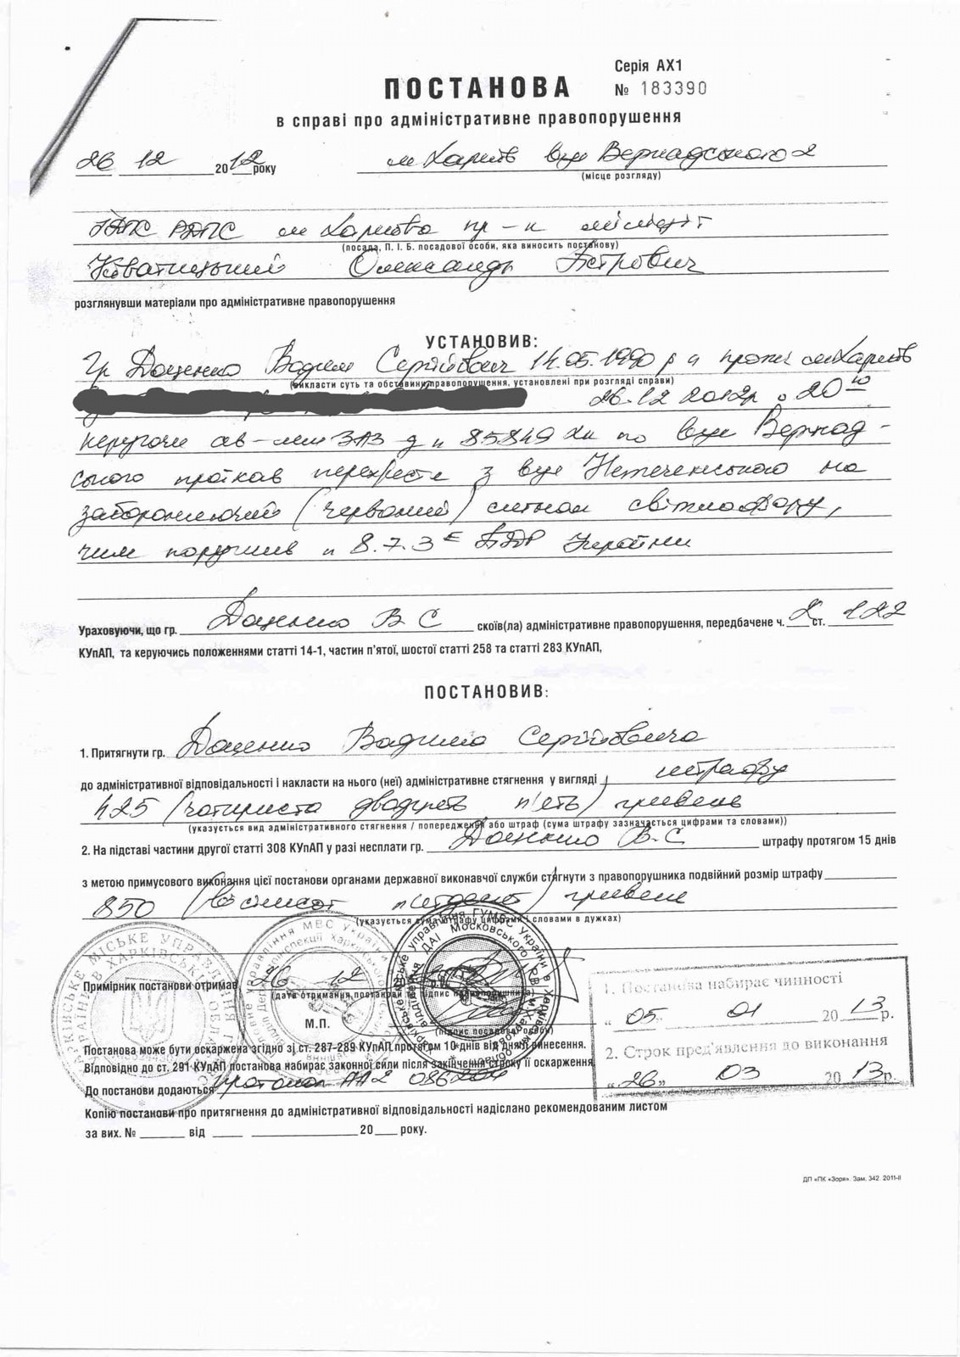 Серія АХ1
ПОСТАНОВА № 183390
в справі про адміністративне правопорушення
26 12 2012 року м Харків вул Вернадського 2
(місце розгляду)
м Харкова пр-к міліції
(посада, П. І. Б. посадової особи, яка виносить постанову)
Олександр Петрович
розглянувши матеріали про адміністративне правопорушення
УСТАНОВИВ:
Гр Доценко Вадим Сергійович 14.05.1990 р н прож м Харків
(викласти суть та обставини правопорушення, установлені при розгляді справи)
26.12 2012р о 20 10
керуючи ав-лем ЗАЗ д н 85849 по вул Вернад-
ського проїхав перехрестя з вул Нетеченською на
забороняючий (червоний) сигнал світлофору,
чим порушив п 8.7.3 Е ПДР України
Ураховуючи, що гр. Доценко В С скоїв(ла) адміністративне правопорушення, передбачене ч. 2 ст. 122
КУпАП, та керуючись положеннями статті 14-1, частин п'ятої, шостої статті 258 та статті 283 КУпАП,
ПОСТАНОВИВ:
1. Притягнути гр. Доценко Вадима Сергійовича
до адміністративної відповідальності і накласти на нього (неї) адміністративне стягнення у вигляді штрафу
425 (чотириста двадцять п'ять) гривень
(указується вид адміністративного стягнення / попередження або штраф (сума штрафу зазначається цифрами та словами))
2. На підставі частини другої статті 308 КУпАП у разі несплати гр. Доценко В.С штрафу протягом 15 днів
з метою примусового виконання цієї постанови органами державної виконавчої служби стягнути з правопорушника подвійний розмір штрафу
850 (вісімсот п'ятдесят) гривень
(указується сума штрафу цифрами і словами в дужках)
Примірник постанови отримав 26 12
(дата отримання постанови та підпис правопорушника)
М.П.
1. Постанова набирає чинності
" 05 " 01 2013р.
2. Строк пред'явлення до виконання
" 26 " 03 2013р.
Постанова може бути оскаржена згідно зі ст. 287-289 КУпАП протягом 10 днів від дня її винесення.
Відповідно до ст. 291 КУпАП постанова набирає законної сили після закінчення строку її оскарження.
До постанови додаються протокол АА2
Копію постанови про притягнення до адміністративної відповідальності надіслано рекомендованим листом
за вих. № від 20 року.
ДП «ПК «Зоря». Зам. 342. 2011-ІІ